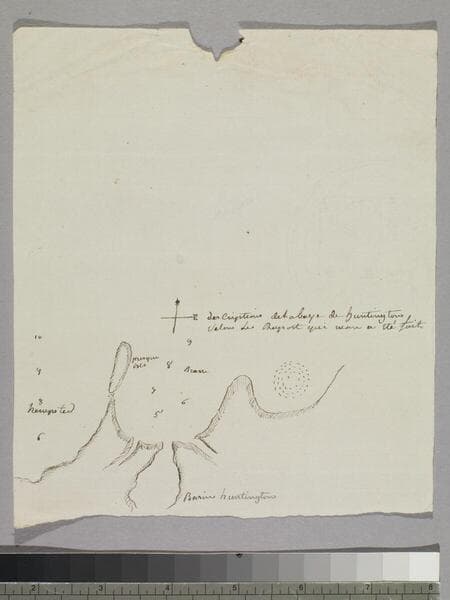 E descriptions de la baye de huntingtons
selons Le Raport qui m'en a été fait
10
9
9
presque
isle
8
Basse
9
8
hemsted
9
6
5
6
Basin huntingtons
1
2
3
4
5
6
7
8